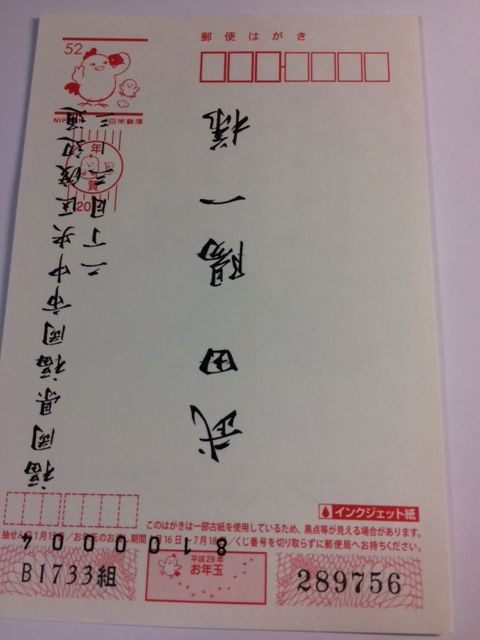 郵便はがき
52
NIPPON 日本郵便
年
賀
20
8100004
福岡県福岡市中央区渡辺通
二丁目三一三
武田陽一様
インクジェット紙
このはがきは一部古紙を使用しているため、黒点等が見える場合があります。
抽せん日1月15日/お年玉のお渡し期間1月16日~7月18日/くじ番号を切り取らずに郵便局へお持ちください。
B1733組
平成29年
お年玉
289756